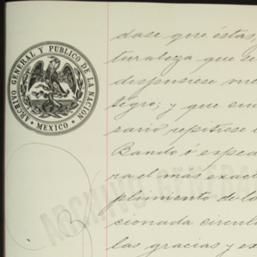 ARCHIVO GENERAL Y PUBLICO DE LA NACION
MEXICO
dase que éstas,
turaleza que se
despusiese me
legro; y que em
sario repitiese
Bando ó espe
ra el mas exac
plimiento de lo
cionada circul
las gracias y ex